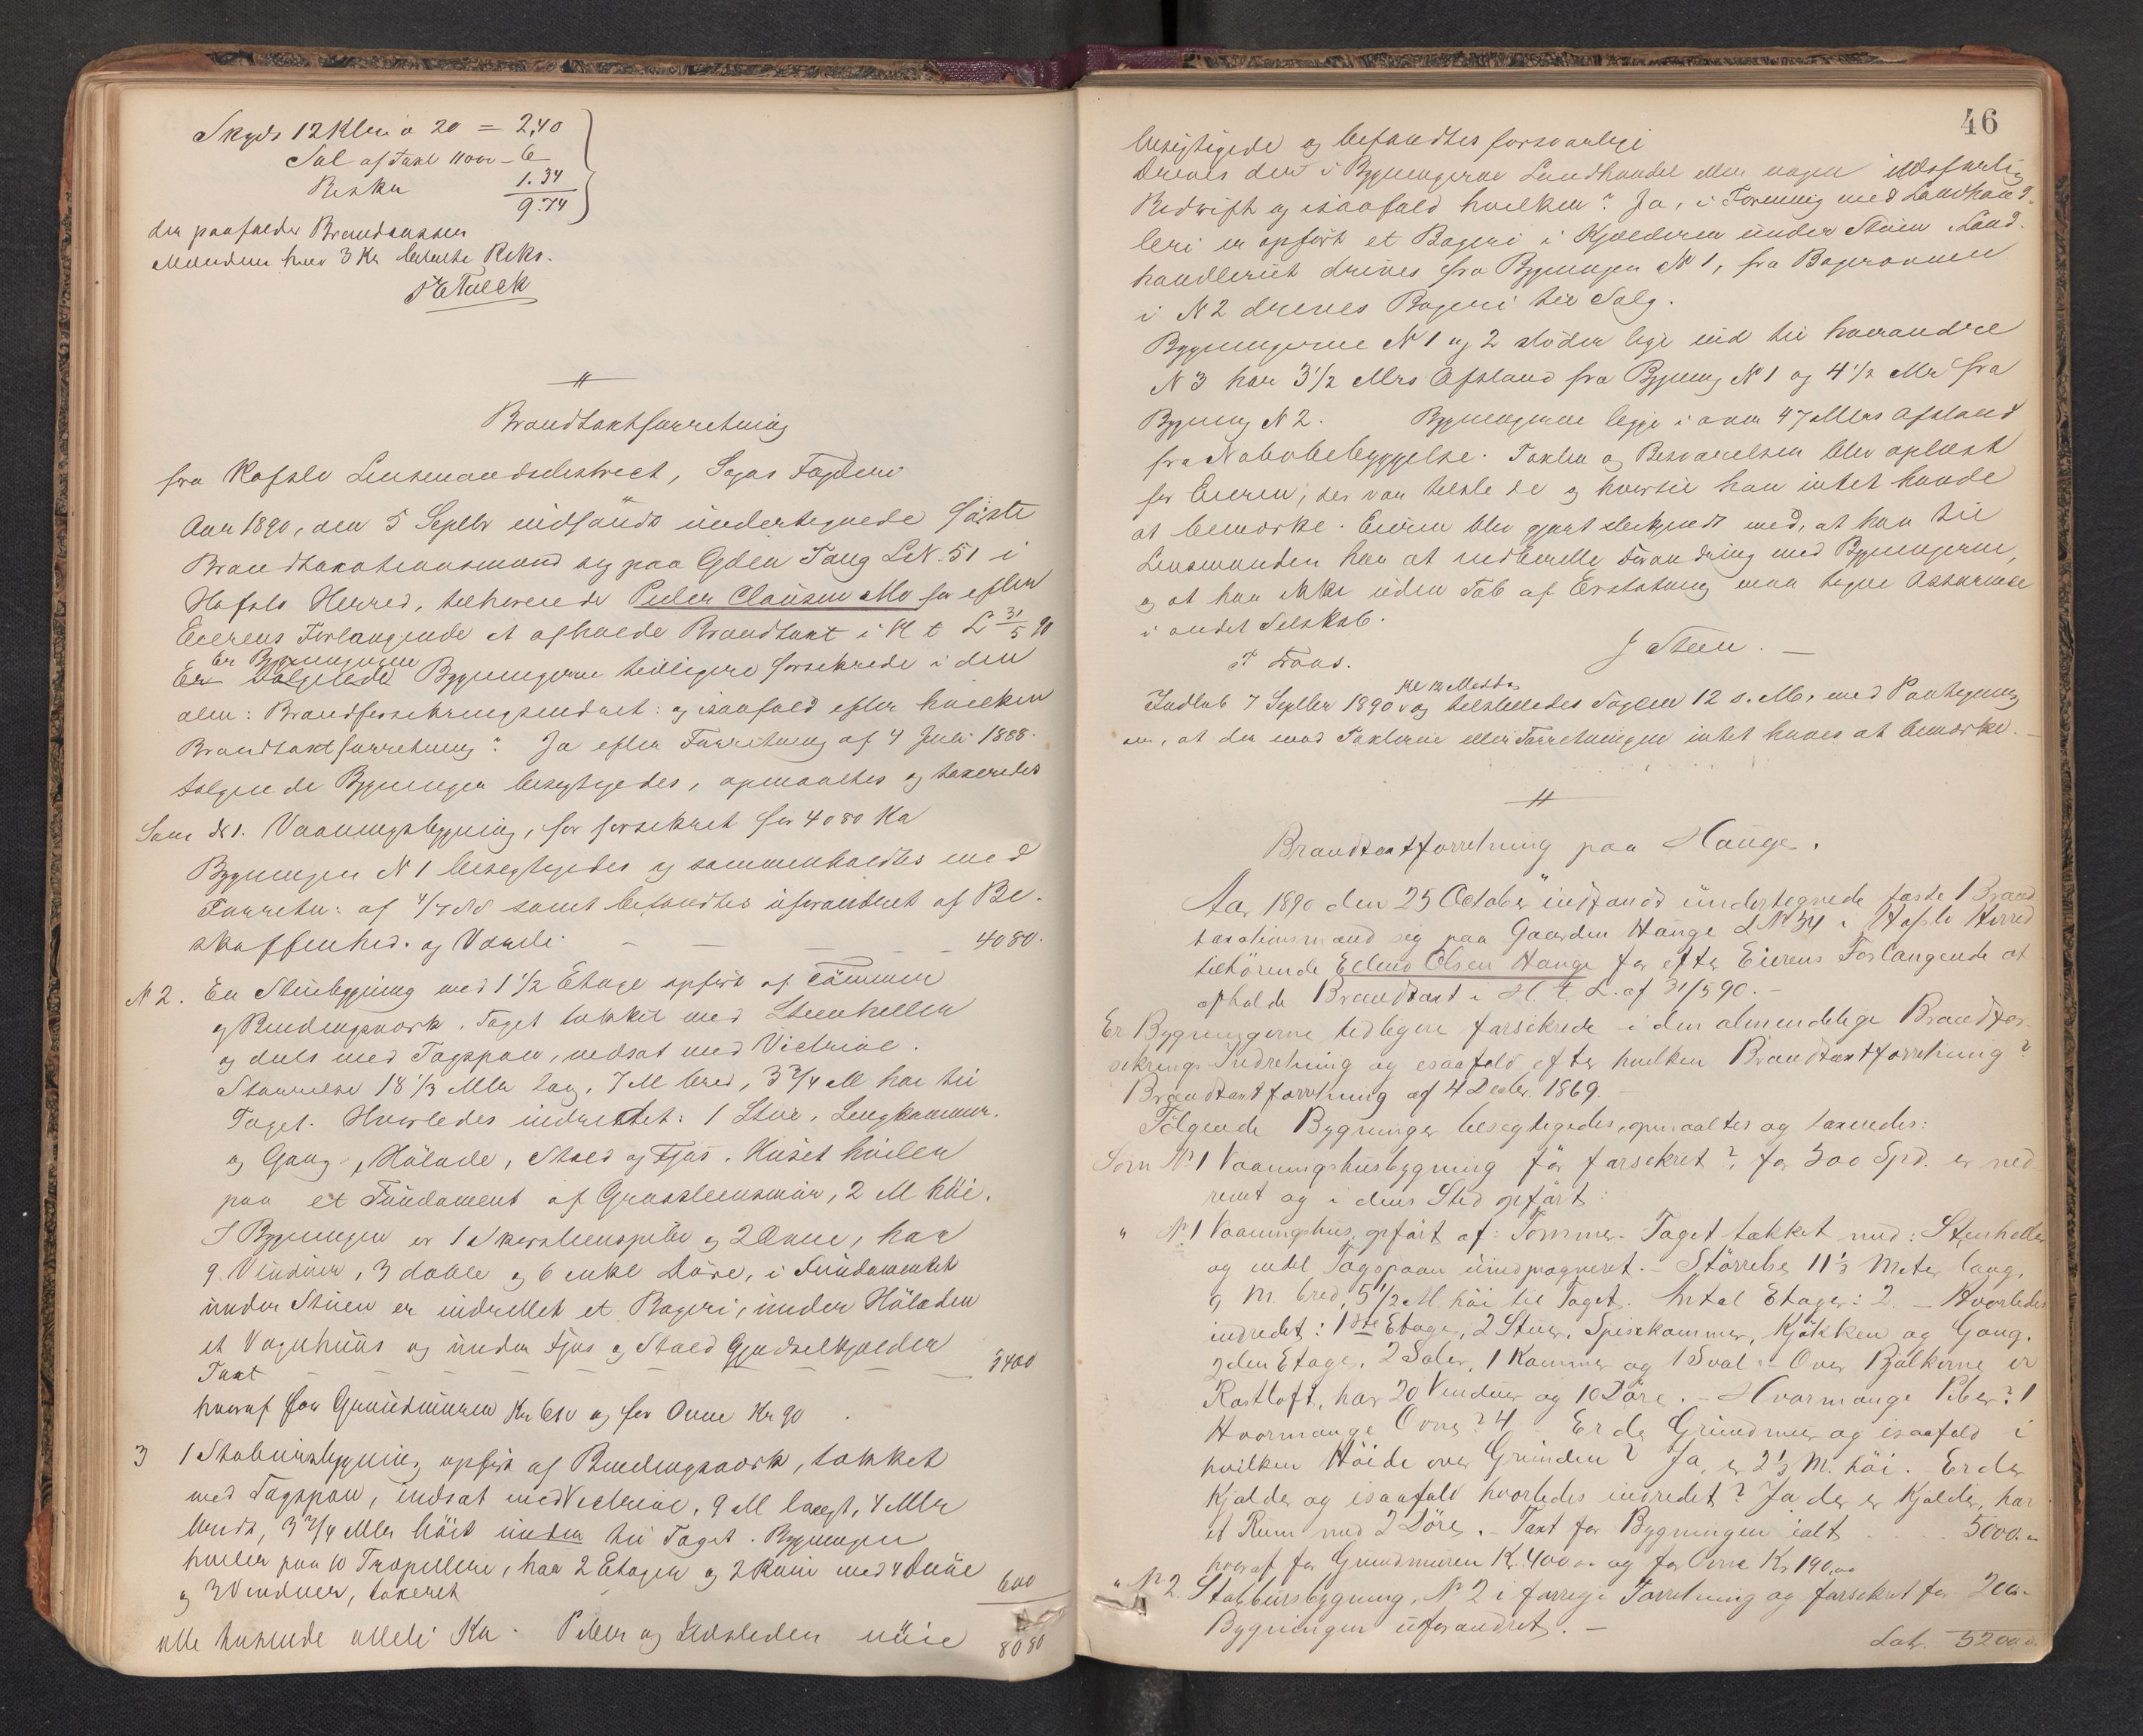 Skyds 12 Klm a 20 = 2,40
Sal af Taxt - 6
1.34
9.74
der paafalder Brandkassen
Manden har 3 Kr betalte Reks.
Brandtaxtforretning
fra Hafslo Lensmandsdistrict, Sogns Fogderi
Aar 1890, den 5 Septbr indfandt undertegnede faste
Brandtaxationsmænd sig paa Gden Tang LN. 51 i
Hafslo Herred, tilhørende Peder Clausen Mo for efter
Eierens Forlangende at afholde Brandtaxt i H t L 31/5 90
Er Bygningen
Er følgende Bygningerne tidligere forsikrede i den
alm: Brandforsikringsindret: og isaafald efter hvilken
Brandtaxtforretning? Ja efter Forretning af 4 Juli 1888.
følgende Bygninger besigtigedes, opmaaltes og taxeredes
Som N 1. Vaaningsbygning, før forsikret for 4080 Kr
Bygningen N 1 besigtigedes og sammenholdtes med
Forretn: af 4/7 88 samt befandtes uforandret af Be-
skaffenhed og Værdi — — — — 4080.
N 2. En Stuebygning med 1 1/2 Etage opført af Tømmer
og Bindingsværk, Taget tækket med Steenheller
og dels med Tagspon, indsat med Victriol.
Størrelse 18 1/3 Mtr lag, 7 M bred, 3 3/4 M høi til
Taget. Hvorledes indrettet: 1 Stue, Sengkammer
og Gang, Hølade, Stald og Fjøs. Huset hviler
paa et Fundament af Graasteensmur, 2 M høi.
I Bygningen er 1 Skorsteenspibe og 2 Ovne, har
9 Vinduer, 3 doble og 6 enkl Døre, i Fundamentet
under Stuen er indrettet et Bageri, under Høladen
et Vognhuus og under Fjøs og Stald Gjødselkjælder
Taxt — — — — — 3400
hvoraf for Grundmuren Kr 600 og for Ovne Kr 90
3 1 Stabursbygning opført af Bindingsværk, tækket
med Tagspon, indsat med Victriol, 9 M langt, 4 Mtr
bredt, 3 3/4 Mtr høit under til Taget. Bygningen
hviler paa 10 Træpillere, har 2 Etager og 2 Rum med 4 Døre
og 3 Vinduer, taxeret 600
alle Husene tilleli Kr. Piber og Ildsteder nøie 8080
46
besigtigede og befandtes forsvarlige
Drives der i Bygningerne Landhandel eller nogen ildsfarlig
Bedrift og isaafald hvilken? Ja, i Forening med Landhand-
leri er opført et Bageri i Kjælderen under Stuen. Land-
handleriet drives fra Bygningen N 1, fra Bagerovnen
i N 2 drives Bageri til Salg.
Bygningerne N 1 og 2 støder lige ind til hverandre
N 3 har 3 1/2 Mtrs Afstand fra Bygning N 1 og 4 1/2 Mtr fra
Bygning N 2. Bygningerne ligge i over 47 Mtrs afstand
fra Nabobebyggelse. Taxten og Besvarelsen blev oplæst
for Eieren, der var tilstede og hvortil han intet havde
at bemærke. Eieren blev gjort bekjendt med, at han til
Lensmanden har at indberette Forandring med Bygningerne,
og at han ikke uden Tab af Erstatning maa tegne Assurance
i andet Selskab.
J Steen. —
Indløb 7 Septbr 1890 og tilstilledes Fogden 12 s. M. med Paategning
om, at der mod Taxterne eller Forretningen intet haves at bemærke.
Brandtaxtforretning paa Hauge.
Aar 1890 den 25 October indfandt undertegnede faste Brand
taxationsmænd sig paa Gaarden Hauge LN 34 i Hafslo Herred
tilhørende Olsen Hauge for efter Eierens Forlangende at
afholde Brandtaxt i H. t. L. af 31/5 90. —
Er Bygningerne tidligere forsikrede i den almindelige Brandfor-
sikrings Indretning og isaafald efter hvilken Brandtaxtforretning?
Brandtaxtforretning af 4 Decbr. 1869. —
Følgende Bygninger besigtigedes, opmaaltes og taxeredes:
Som No 1 Vaaningshusbygning før forsikret?, for 500 Spd. er ned
revet og i dens Sted opført:
" No 1 Vaaningshus, opført af: Tømmer. Taget tækket med: Steenheller
og endel Tagspaan uimpregneret. — Størrelse 11 1/3 Meter lang,
9 M. bred, 5 1/2 M. høi til Taget. Antal Etager: 2. — Hvorledes
indredet: 1ste Etage, 2 Stuer, Spisekammer, Kjøkken og Gang.
2den Etage. 2 Saler, 1 Kammer og 1 Sval. — Over Bjælkerne er
Røstloft, har 20 Vinduer og 10 Døre. — Hvormange Piber? 1
Hvormange Ovne? 4 — Er der Grundmur og isaafald i
hvilken Høide over Grunden? Ja, er 2 1/3 M. høi. Er der
Kjælder og isaafald hvorledes indredet? Ja der er Kjælder, har
et Rum med 2 Døre. — Taxt for Bygningen ialt - - - - 5000.-
hvoraf for Grundmuren Kr. 400.00 og for Ovne Kr 190,00
" No 2. Stabbursbygning, No 2 i forrige Forretning og forsikret for 200.-
Bygningen uforandret. —
Lat. 5200.-